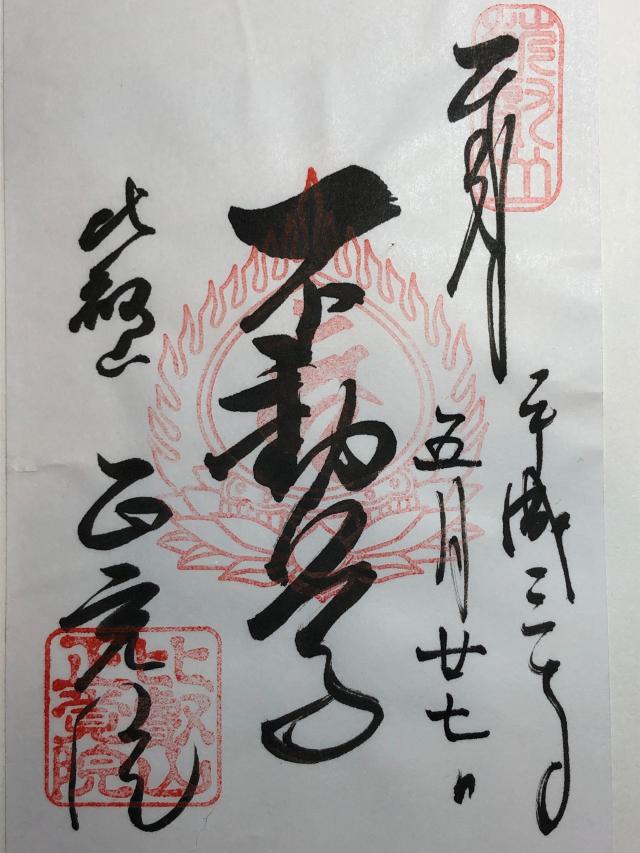 奉拝
平成三十年
五月廿七日
不動尊
比叡山
正覚院
比叡山
正覚院